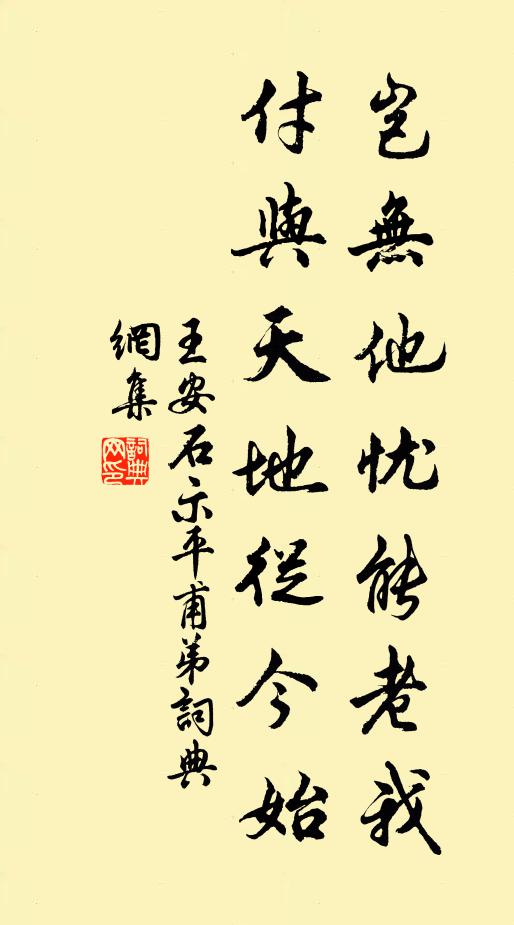 豈無他忧能老我
付與天地從今始
王安石示平甫弟詞典
網集
詞典
网印